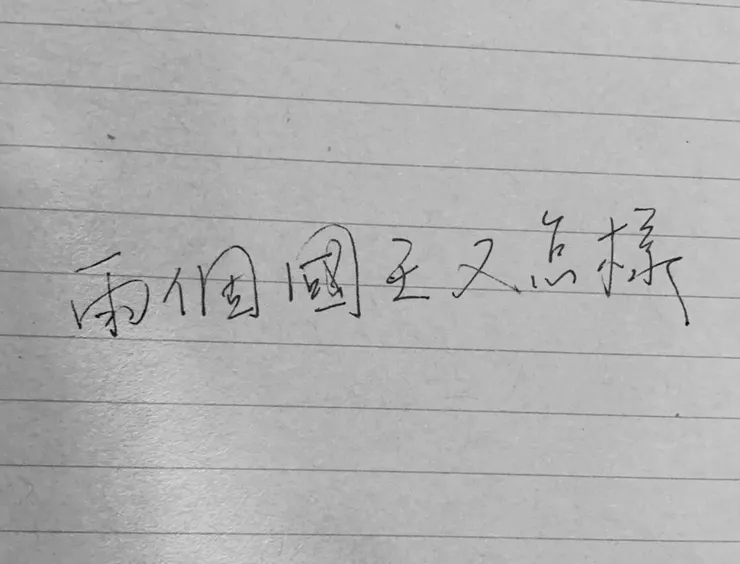 兩個國王又怎樣